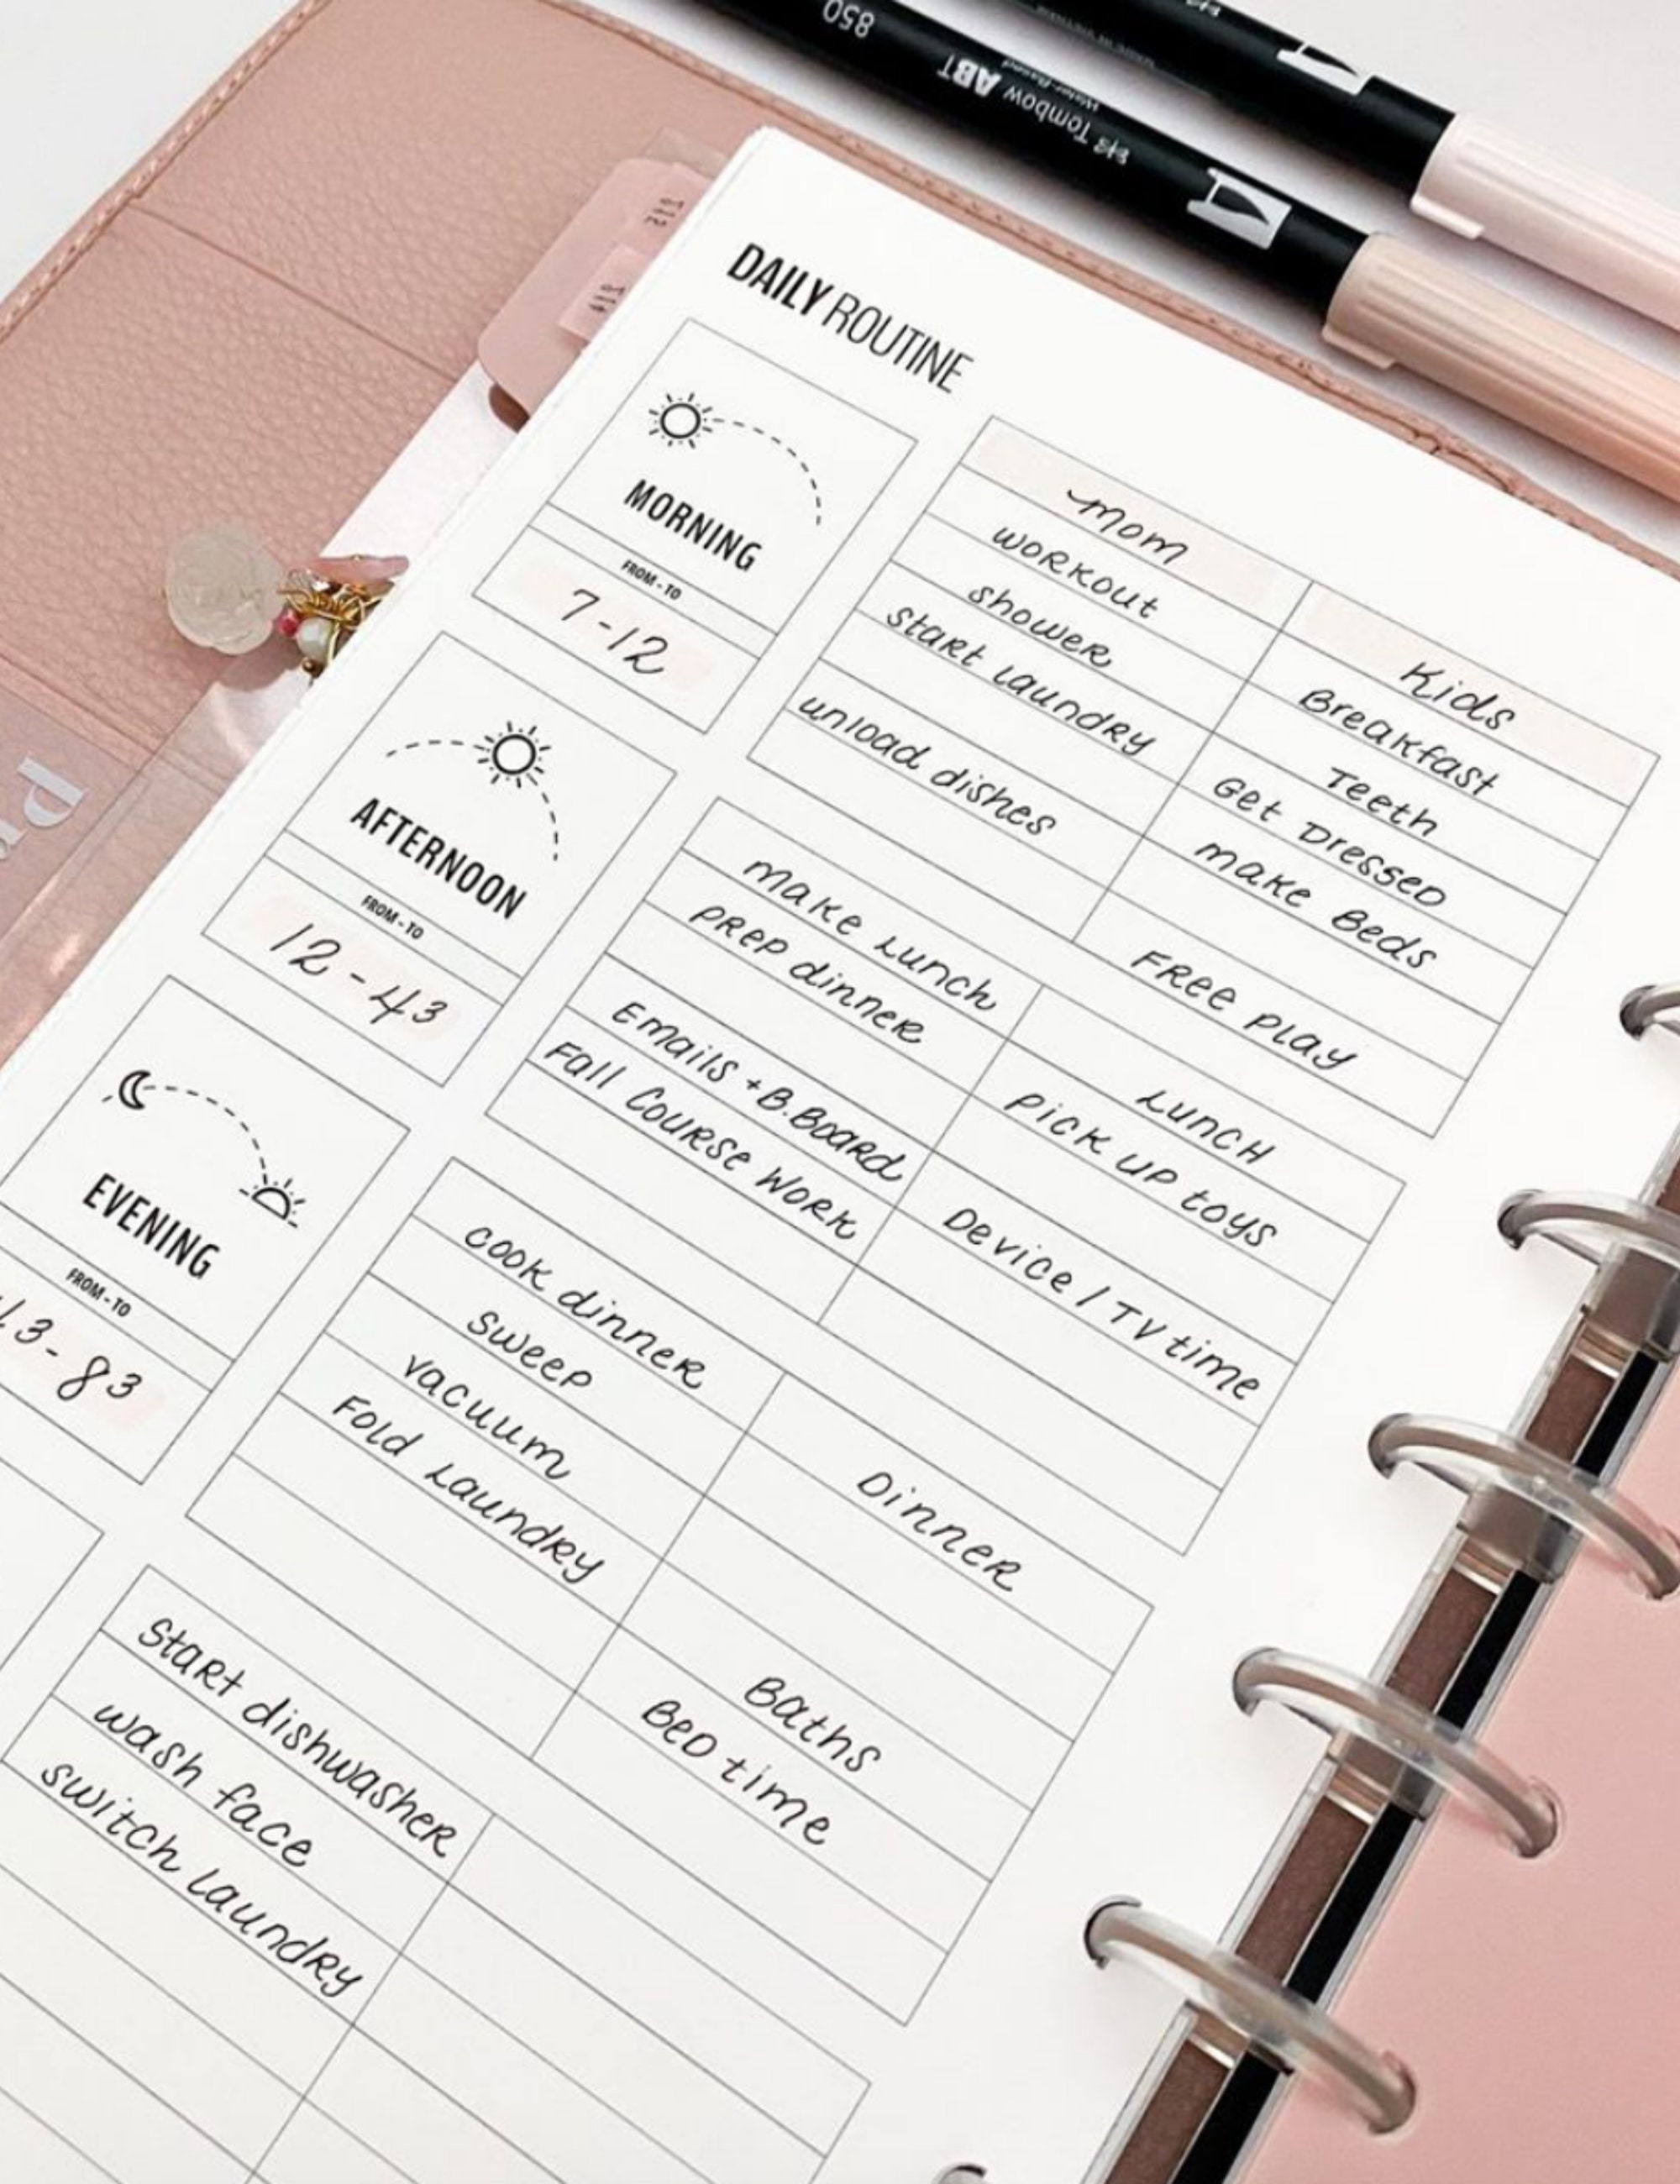 850
Tombow ABT
Water-Based
DAILY ROUTINE
MORNING
FROM - TO
7-12
mom
Kids
workout
Breakfast
shower
Teeth
start laundry
Get Dressed
make Beds
unload dishes
Free play
AFTERNOON
FROM - TO
12-43
make lunch
Lunch
prep dinner
pick up toys
Emails + B.Board
Device / TV time
Fall Course Work
EVENING
FROM - TO
43-83
cook dinner
Dinner
sweep
vacuum
Fold Laundry
Baths
Bed time
start dishwasher
wash face
switch laundry